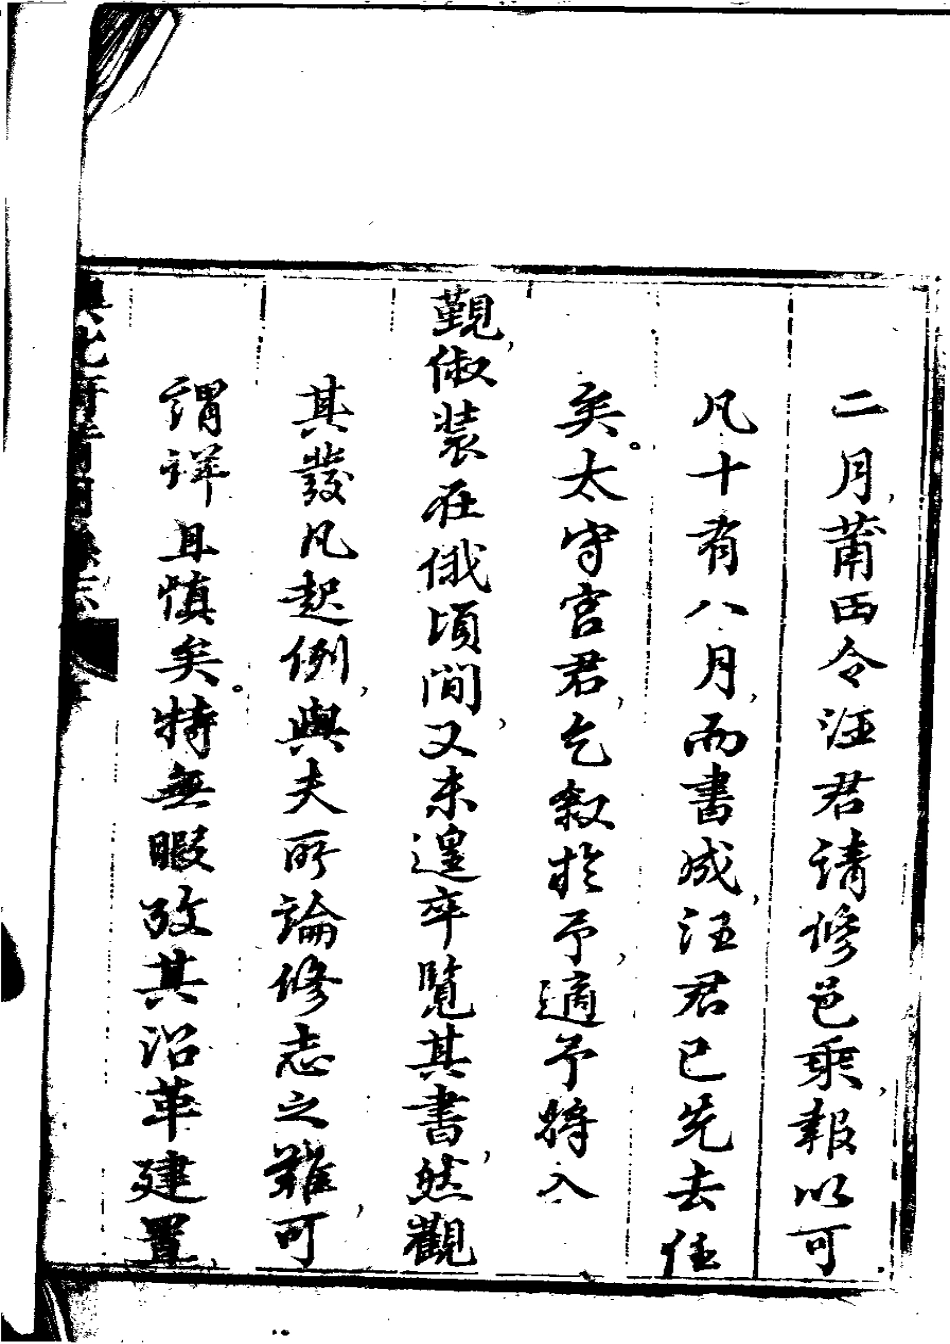 二月莆西令汪君請修邑乘報以可
凡十有八月而書成汪君已先去任
矣太守宮君乞叙於予適予將入
覲俶裝在俄頃間又未遑卒覽其書然觀
其發凡起例與夫所論修志之難可
謂詳且慎矣特無暇攷其沿革建置